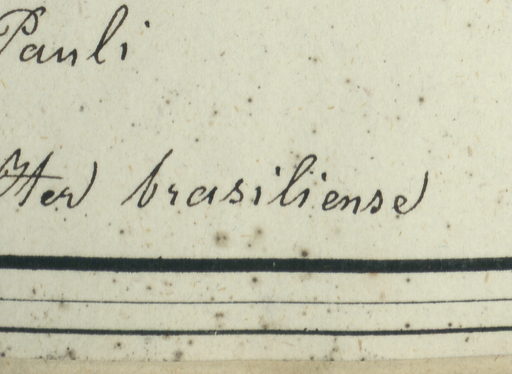 Pauli
Iter brasiliense